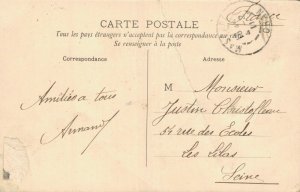 CARTE POSTALE
Tous les pays étrangers n'acceptent pas la correspondance au recto
Se renseigner à la poste
Correspondance
Adresse
Amitiés a tous
Armand
M Monsieur
Justin Christofleau
54 rue des Ecoles
Les Lilas
Seine